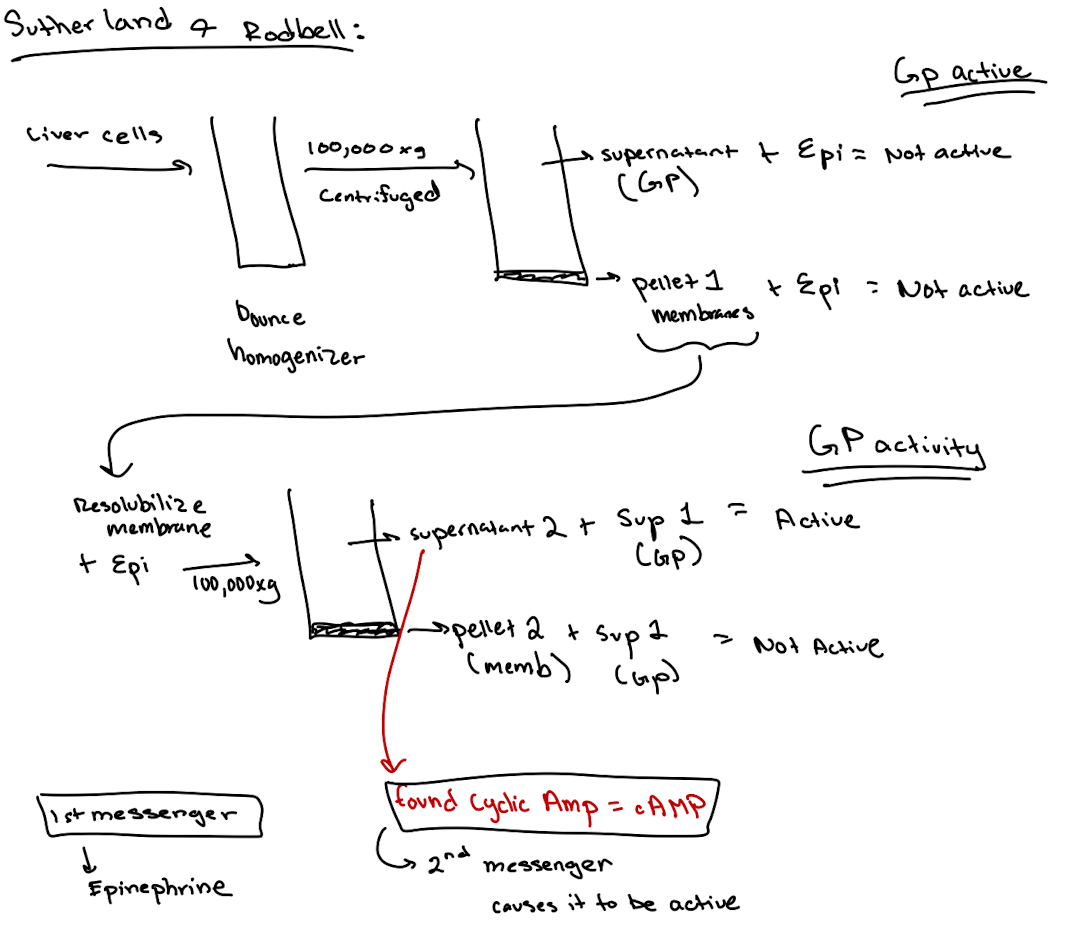 Sutherland & Rodbell:
Gp active
Liver cells
100,000 xg
Centrifuged
supernatant + Epi = Not active
(GP)
pellet 1 + Epi = Not active
membranes
Dounce
homogenizer
GP activity
Resolubilize
membrane
+ Epi
100,000xg
supernatant 2 + Sup 1 = Active
(GP)
pellet 2 + Sup 1 = Not Active
(memb) (Gp)
1st messenger
Epinephrine
found Cyclic Amp = cAMP
2nd messenger
causes it to be active